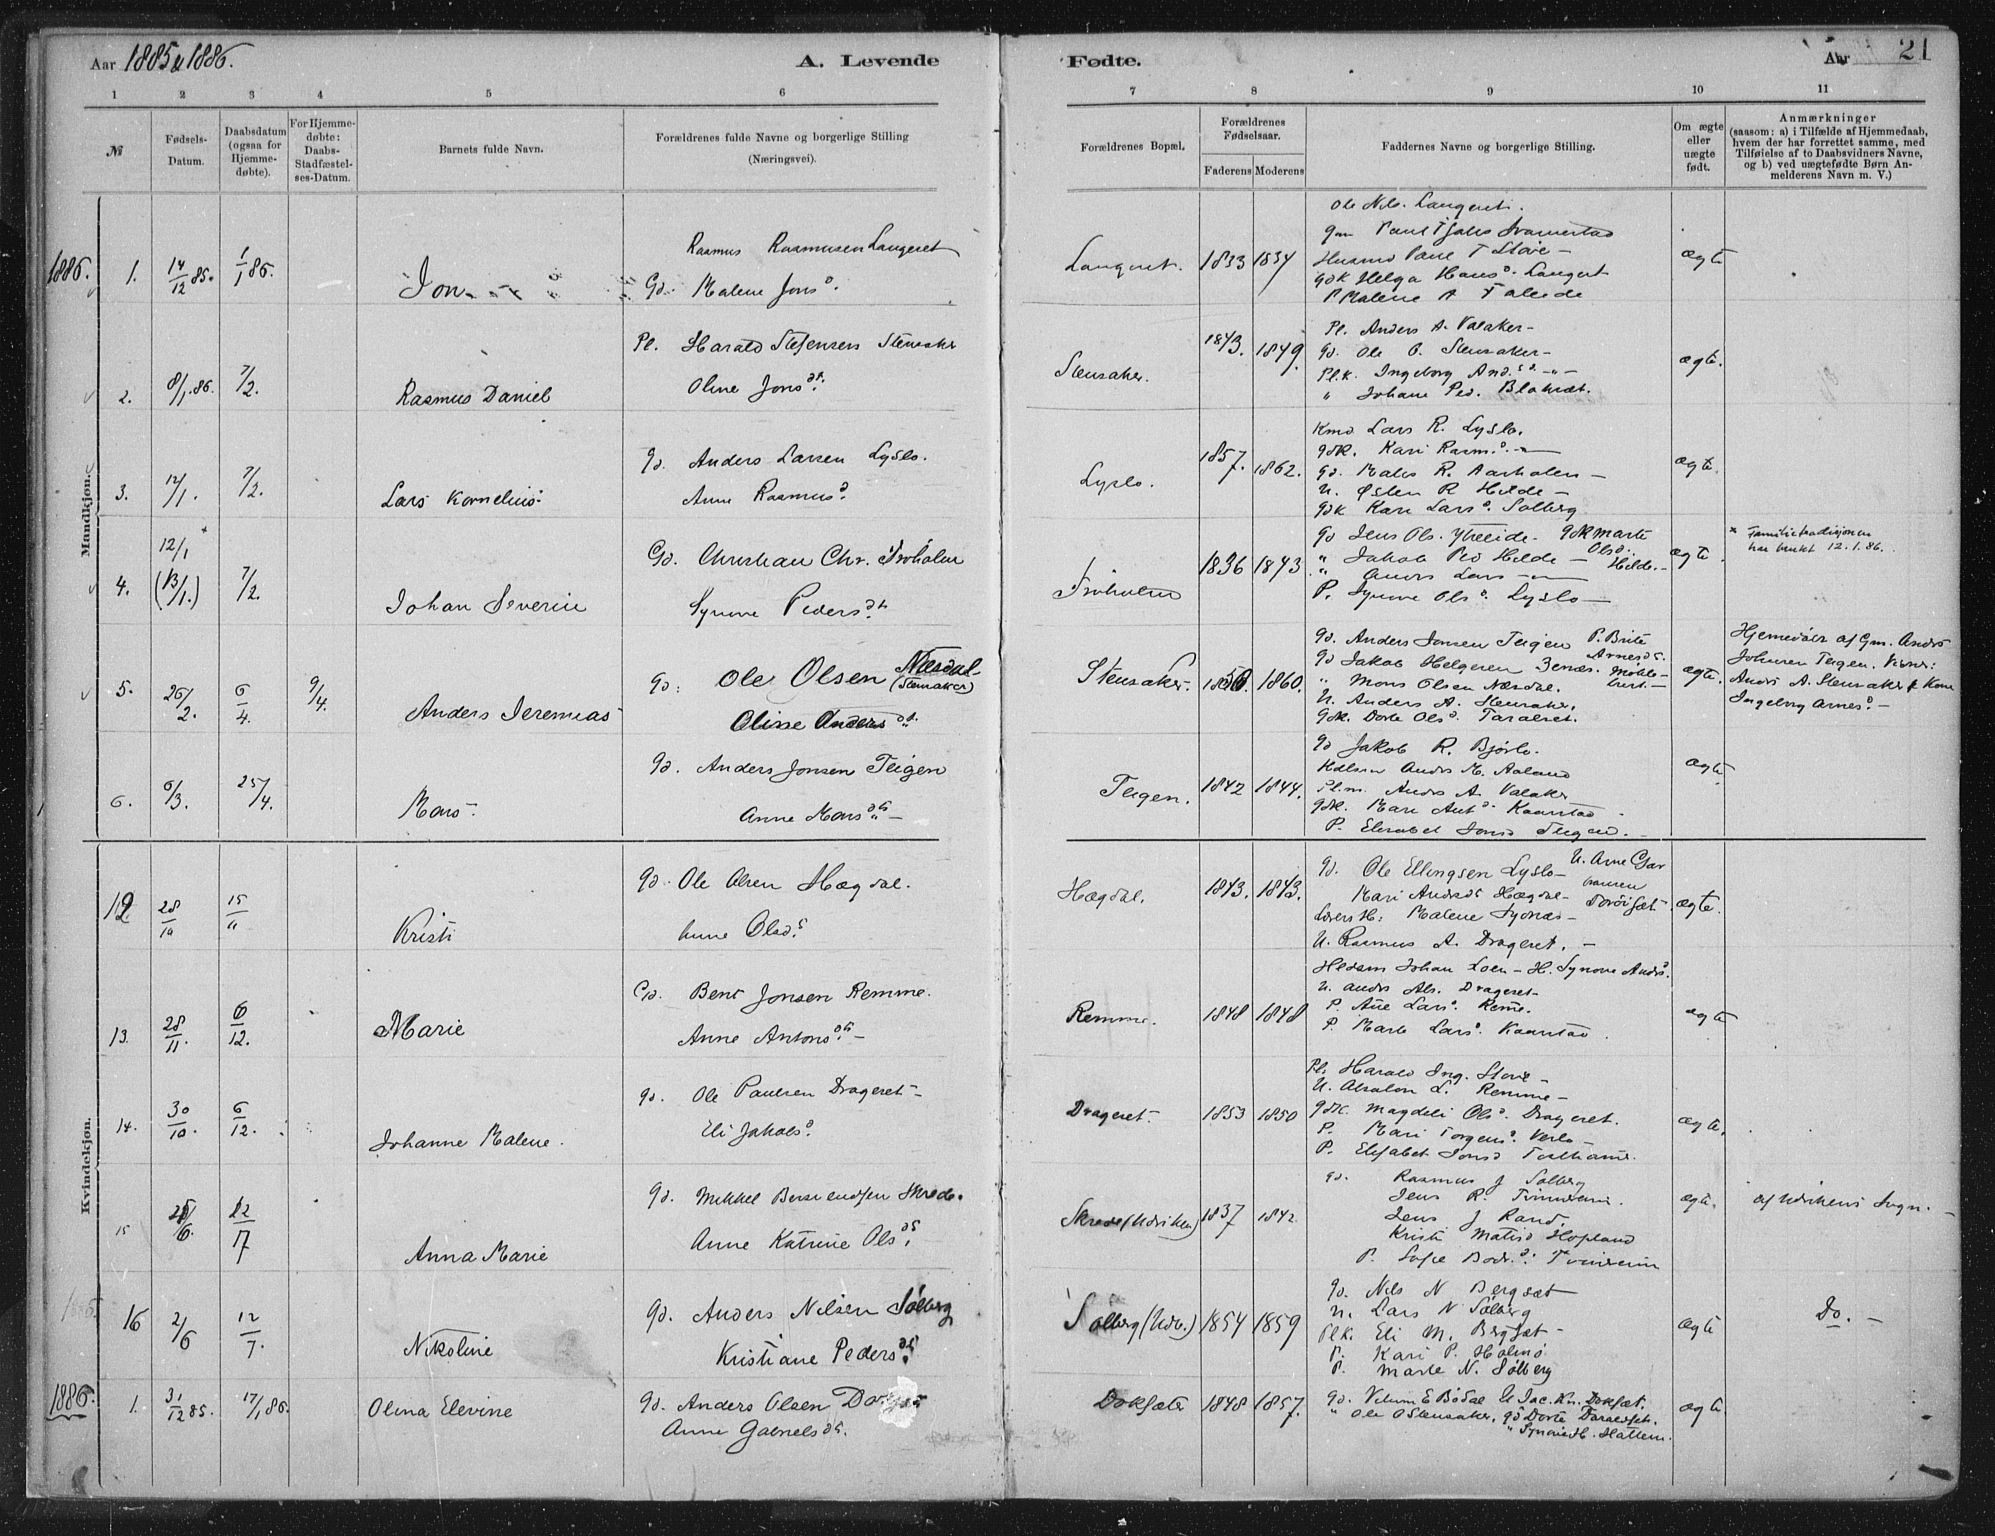 Aar 1885 & 1886.
A. Levende Fødte.
Aar 21
1 2 3 4 5 6 7 8 9 10 11
№
Fødsels-Datum.
Daabsdatum (ogsaa for Hjemme-døbte).
For Hjemme-døbte: Daabs-Stadfæstel-ses-Datum.
Barnets fulde Navn.
Forældrenes fulde Navne og borgerlige Stilling (Næringsvei).
Forældrenes Bopæl.
Forældrenes Fødselsaar.
Faderens Moderens
Faddernes Navne og borgerlige Stilling.
Om ægte eller uægte født.
Anmærkninger
(saasom: a) i Tilfælde af Hjemmedaab,
hvem der har forrettet samme, med
Tilføielse af to Daabsvidners Navne,
og b) ved uægtefødte Børn An-
melderens Navn m. V.)
Mandkjøn.
1886. 1. 14/12 85. 1/1 86. Jon
Rasmus Rasmusen Langeret
Gd. Malene Jonsd.
Langeret. 1833 1834
Ole Nils. Langeret.
Husmd Paul T Støve
Gdk Helga Hansd. Langeret
P Malene A
ægte
2. 8/1. 86. 7/2. Rasmus Daniel
Pl. Harald Stefensen Stensaker
Oline Jonsdt.
Stensaker. 1843. 1849.
Pl. Anders A. Valaker
Gd. Ole O. Stensaker
Pl.k. Ingeborg And.sd.
" Johane Ped.
ægte.
3. 12/1. 7/2. Lars Kornelius
Gd. Anders Larsen Lyslo.
Anne Rasmusd.
Lyslo. 1857. 1862.
Kmd Lars R. Lyslo.
Gdk. Kari Rasm.d.
Gd. Mads R. Aarholen
U. Østen R Hilde
Gdk Kari Larsd. Solberg
ægte.
4. 12/1 x (13/1.) 7/2. Johan Severin
Gd. Christian Chr. Tvoholm
Synove Pedersdt.
1836 1843
Gd Jens Ols. Ytreeide. Gdk Marte Olsd. Hilde.
" Jakob Ped Hilde
" Anders Lars
P. Synove Olsd. Lyslo
ægte
x Familietradisjonen
har brukt 12.1.86.
5. 26/2. 6/4. 9/4. Anders Jeremias
Gd. Ole Olsen Næsdal (Stensaker)
Oline Andersdt.
Stensaker. 1856. 1860.
Gd. Anders Jonsen Teigen P. Brite Arnesd.
Gd Jakob Helgesen
" Mons Olsen Næsdal.
U. Anders A. Stensaker.
Gdk. Dorte Olsd. Taraldset.
ægte.
Hjemedøbt af Gm. Anders
Johnsen Teigen. Vidner:
Anders A. Stensaker & Kone
Ingeborg Arnesd.
6. 6/3. 25/4. Mons
Gd. Anders Jonsen Teigen
Anne Monsdt.
Teigen. 1842 1844.
Gd Jakob R. Bjørlo.
Anders M. Aaland
Pl.m. Anders A. Valaker
Gdk. Mari Antd. Kaarstad
P. Elisabet Jonsd Teigen.
ægte
Kvindekjøn.
12 28/10 15/11 Kristi
Gd. Ole Olsen Hægdal.
Anne Olsdt.
Hægdal. 1843. 1843.
Gd. Ole Ellingsen Lyslo
Kari Andersdt Hægdal
Malene Synnæs
U. Rasmus A. Drageset.
ægte.
13. 28/11. 6/12. Marie
Gd. Bent Jonsen Remme.
Anne Antonsdt.
Remme. 1848 1848
Johan Loen H. Synove Andrsd.
U. Anders Abs. Drageset
P. Ane Larsd. Reme.
P. Marte Larsd. Kaarstad.
ægte
14. 30/10. 6/12. Johanne Malene.
Gd. Ole Paulsen Drageset
Eli Jakobsd.
Drageset. 1853 1850
Pl. Harald Ing. Støve
U. Absalon L. Remme
Gdk. Magdeli Olsd. Drageset.
P. Mari Torgersd.
P. Elisabet Jonsd
ægte.
15 6. 12/7 Anna Marie
Gd. Mikkel Skrede.
Anne Katrine Olsdt.
Skrede (Udviken) 1837 1842.
Gd. Rasmus J Solberg
Jens R.
Jens J Rand.
Kristi Matisd Hopland
P. Sofie
ægte.
af Udvikens Sogn.
16 2/6 12/7. Nikoline
Gd. Anders Nilsen Solberg
Kristiane Pedersdt.
Solberg (Udv.) 1854 1859
Gd. Nils N Bergsæt
U. Lars N Solberg
Pl.k. Eli M. Bergsæt
P. Kari P. Holmø
P. Marte N. Solberg
ægte
Do.
1886. 1. 31/12 85. 17/1 86. Olina Elevine
Gd. Anders Olsen
Anne Gabrielsdt.
Doksæter 1848 1857.
Gd. Velum E Bødal U Jac. Kn. Doksæt.
" Ole O Stensaker, Gd Dorte Taraldset.
" Synove H. Hallem.
ægte